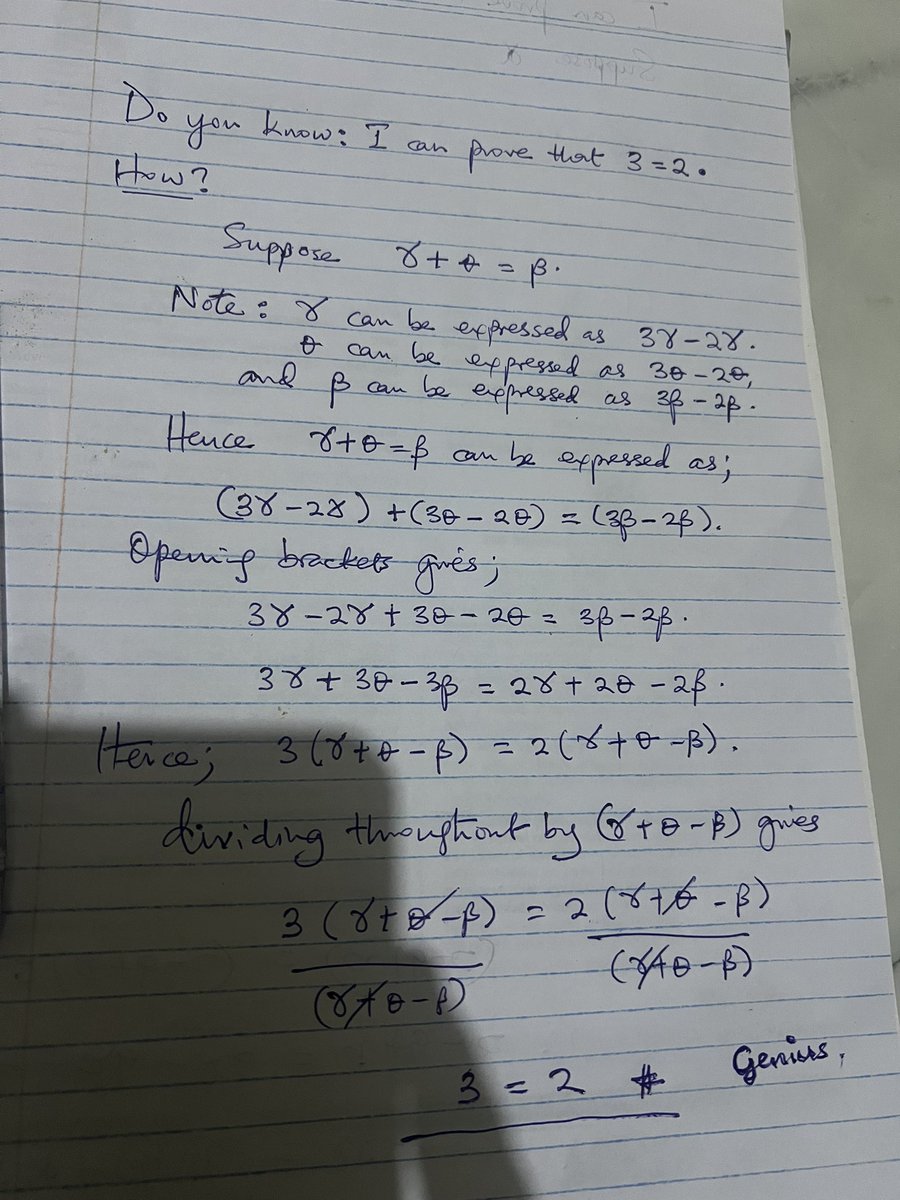 Do you know: I can prove that 3 = 2.
How?
Suppose γ + θ = β.
Note: γ can be expressed as 3γ - 2γ.
θ can be expressed as 3θ - 2θ,
and β can be expressed as 3β - 2β.
Hence γ + θ = β can be expressed as;
(3γ - 2γ) + (3θ - 2θ) = (3β - 2β).
Opening brackets gives;
3γ - 2γ + 3θ - 2θ = 3β - 2β.
3γ + 3θ - 3β = 2γ + 2θ - 2β.
Hence; 3(γ + θ - β) = 2(γ + θ - β).
dividing throughout by (γ + θ - β) gives
3(γ + θ - β) = 2(γ + θ - β)
(γ + θ - β) (γ + θ - β)
3 = 2 # Genius.